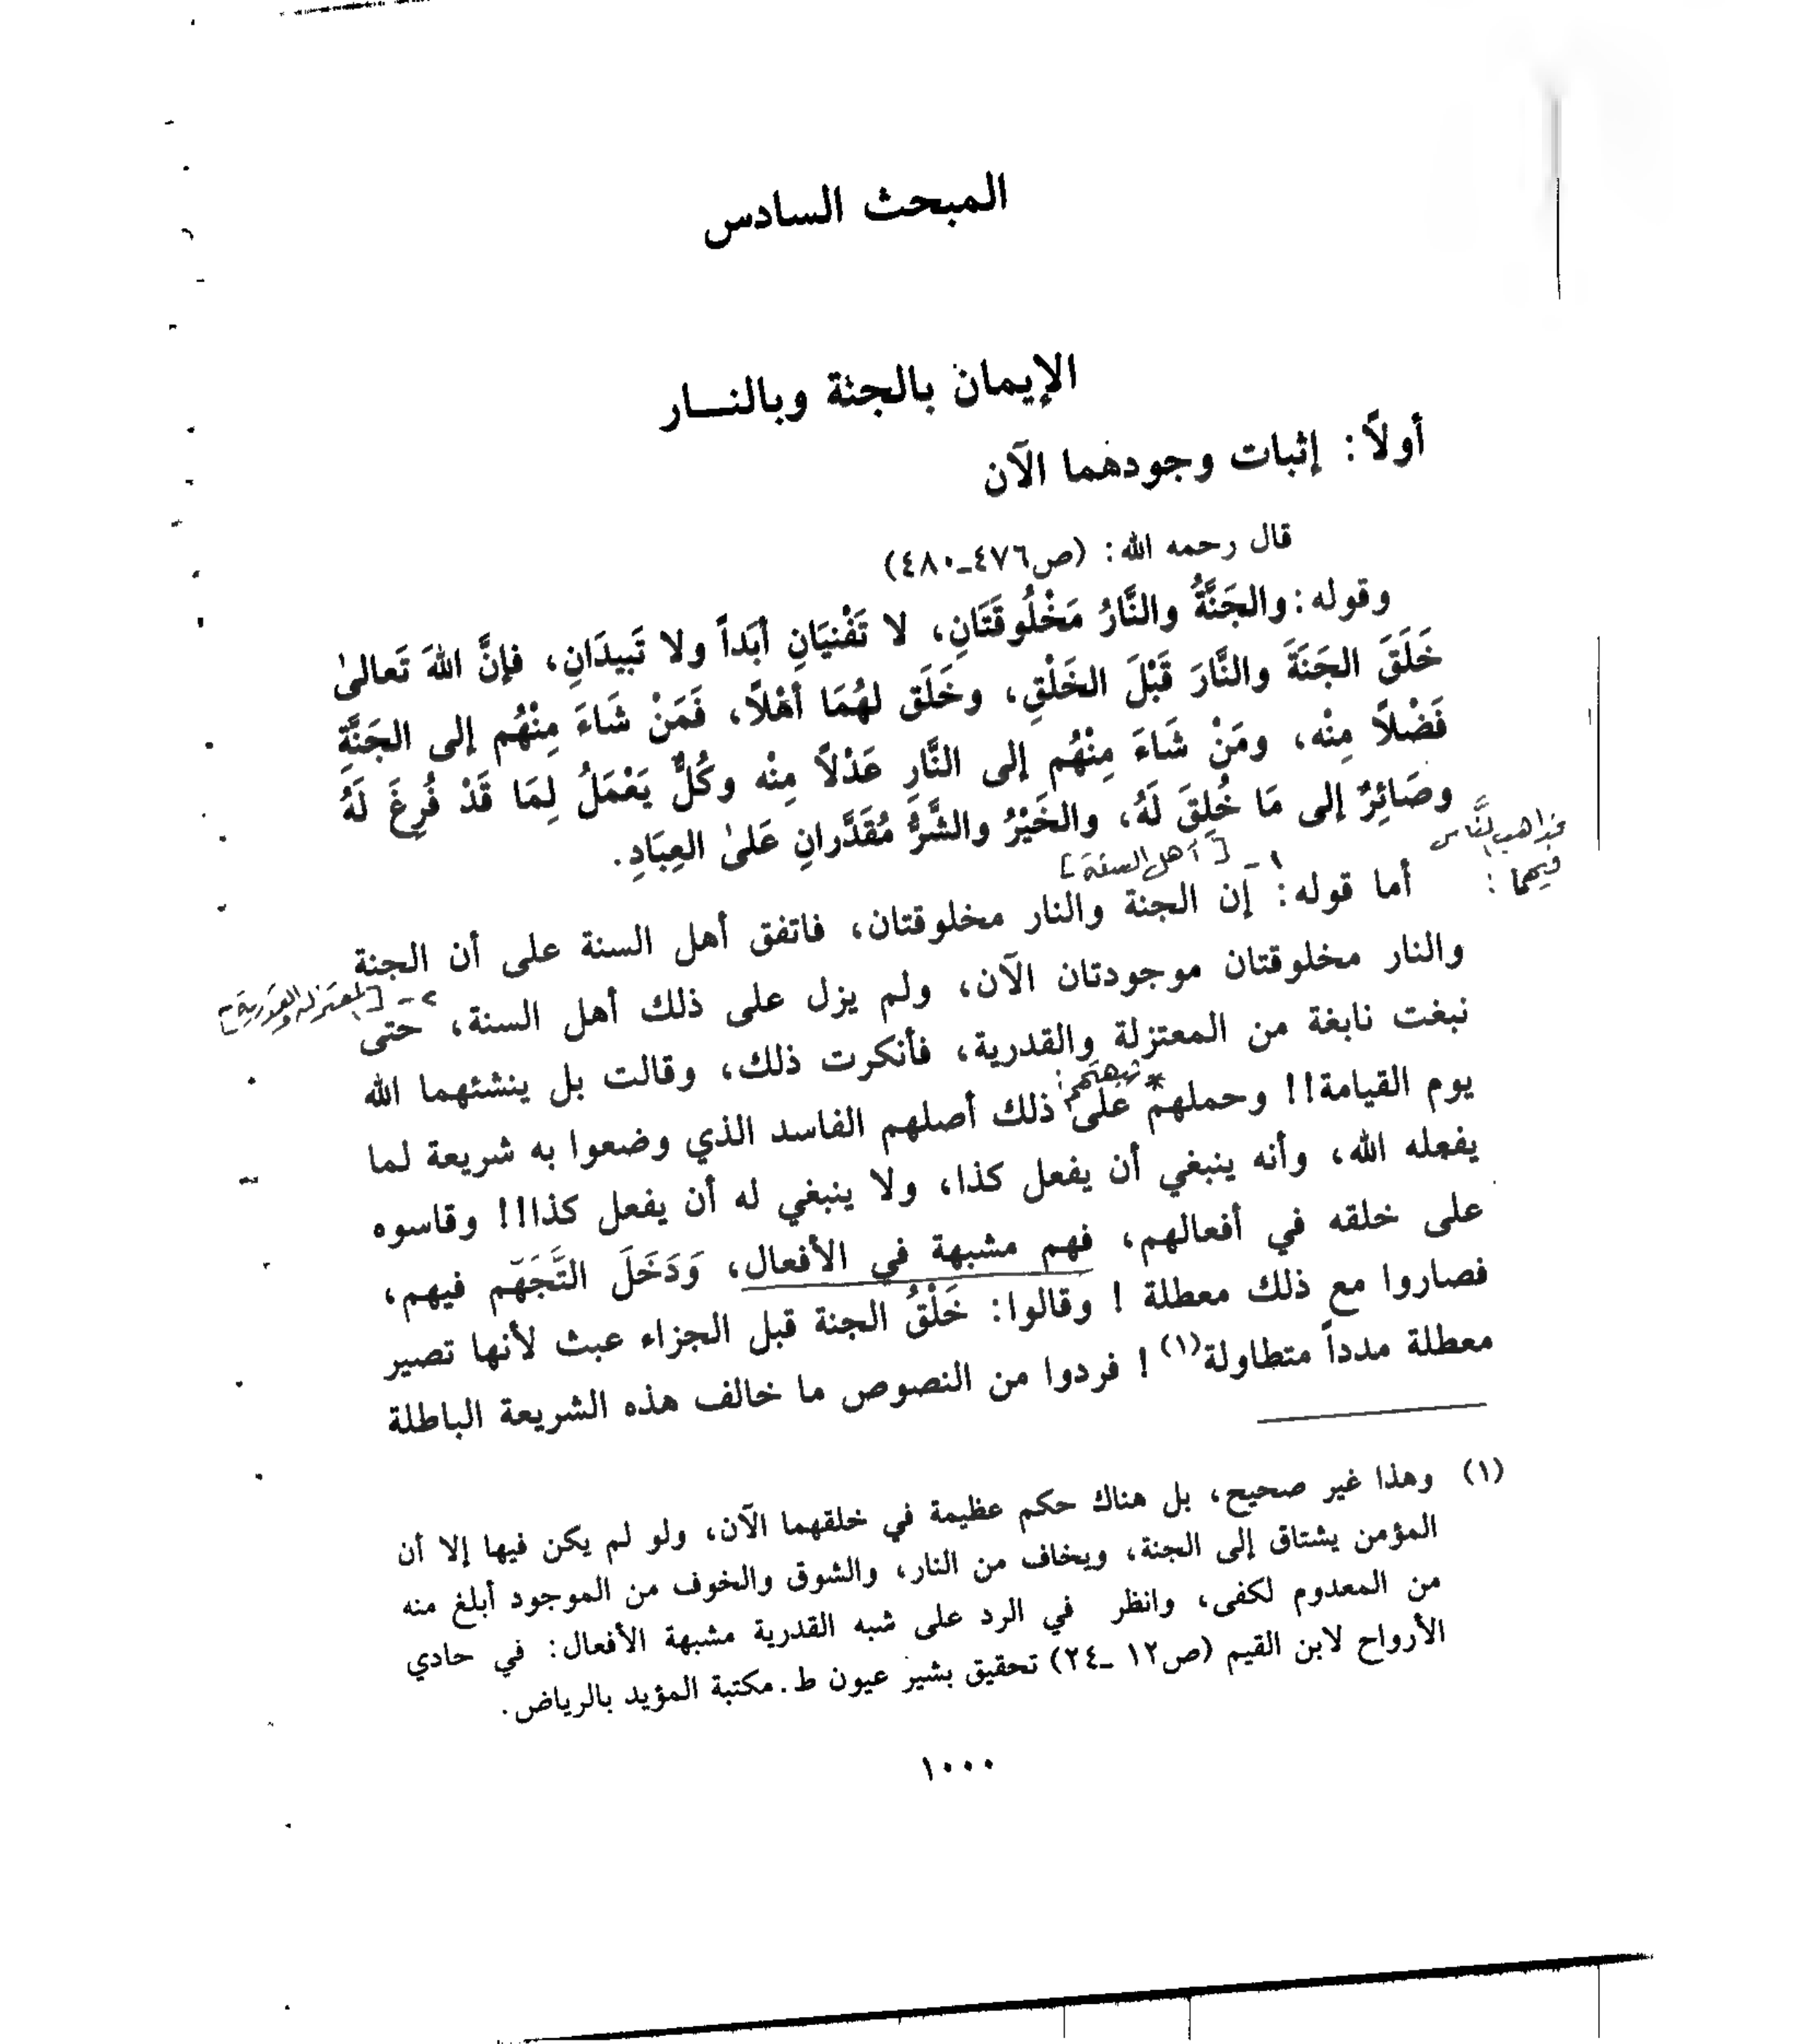 المبحث السادس
الإيمان بالجنة وبالنـــار
أولاً: إثبات وجودهما الآن
قال رحمه الله: (ص٤٧٦ـ٤٨٠)
وقوله: والجَنَّةُ والنَّارُ مَخْلُوقَتَانِ، لا تَفْنيَانِ أبَداً ولا تَبِيدَانِ، فإنَّ اللهَ تَعالىٰ
خَلَقَ الجَنَةَ والنَّارَ قَبْلَ الخَلْقِ، وخَلَق لهُمَا أهْلاً، فَمَنْ شَاءَ مِنْهُم إلى الجَنَّةِ
فَضْلاً مِنْه، ومَنْ شَاءَ مِنْهُم إلى النَّارِ عَدْلاً مِنْه وكُلٌّ يَعْمَلُ لِمَا قَدْ فُرِغَ لَهُ
وصَائِرٌ إلى مَا خُلِقَ لَهُ، والخَيْرُ والشَّرُّ مُقَدَّرانِ عَلىٰ العِبَادِ.
مذاهب النَّاس
فيهما :
١ - [أهل السنة]
أما قوله: إن الجنة والنار مخلوقتان، فاتفق أهل السنة على أن الجنة
والنار مخلوقتان موجودتان الآن، ولم يزل على ذلك أهل السنة، حتى
٢ - [المعتزلة والقدرية]
نبغت نابغة من المعتزلة والقدرية، فأنكرت ذلك، وقالت بل ينشئهما الله
* شبهتهم:
يوم القيامة!! وحملهم على ذلك أصلهم الفاسد الذي وضعوا به شريعة لما
يفعله الله، وأنه ينبغي أن يفعل كذا، ولا ينبغي له أن يفعل كذا!! وقاسوه
على خلقه في أفعالهم، فهم مشبهة في الأفعال، وَدَخَلَ التَّجَهّم فيهم،
فصاروا مع ذلك معطلة ! وقالوا: خَلْقُ الجنة قبل الجزاء عبث لأنها تصير
معطلة مدداً متطاولة(١) ! فردوا من النصوص ما خالف هذه الشريعة الباطلة
(١) وهذا غير صحيح، بل هناك حكم عظيمة في خلقهما الآن، ولو لم يكن فيها إلا أن
المؤمن يشتاق إلى الجنة، ويخاف من النار، والشوق والخوف من الموجود أبلغ منه
من المعدوم لكفى، وانظر في الرد على شبه القدرية مشبهة الأفعال: في حادي
الأرواح لابن القيم (ص١٢ ـ٢٤) تحقيق بشير عيون ط. مكتبة المؤيد بالرياض.
١٠٠٠